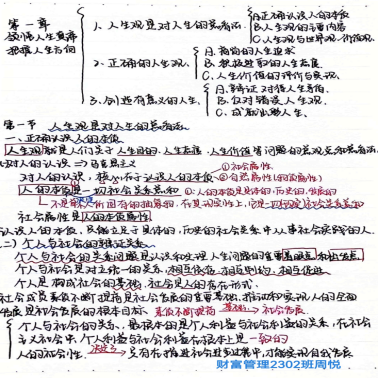 第一章
领悟人生真谛
把握人生方向
1、人生观是对人生的总看法
A.正确认识人的本质
B.人生观的主要内容
C.人生观与世界观、价值观
2、正确的人生观
A.高尚的人生追求
B.积极进取的人生态度
C.人生价值的评价与实现
3、创造有意义的人生
A.辩证对待人生矛盾
B.反对错误人生观
C.成就出彩人生
第一节 人生观是对人生的总看法
一、正确认识人的本质
人生观就是人们关于人生目的、人生态度、人生价值等问题的总观点和总看法
对人的认识 ⇒ 马克思主义
对人的认识,核心在于认识人的本质
①社会属性
②自然属性
人的本质是一切社会关系总和
社会属性是人的本质属性
认识人的本质,只能立足于具体的、历史的社会关系中人事社会实践的人。
二)个人与社会的辩证关系
个人与社会的关系问题是认识和处理人生问题的重要着眼点和出发点
个人与社会是对立统一的关系,相互依存、相互制约、相互促进
个人是构成社会的基础,社会是人的存在形式
社会成员素质不断提高是社会发展的重要基础,推动和实现人的全面
发展是社会发展的根本目标
个人与社会的关系,最根本的是个人利益与社会利益的关系,在社会
主义社会中,个人利益与社会利益在根本上是一致的
人的社会性 决定了 只有在推进社会进步过程中,才能实现自我发展
财富管理2302班周悦